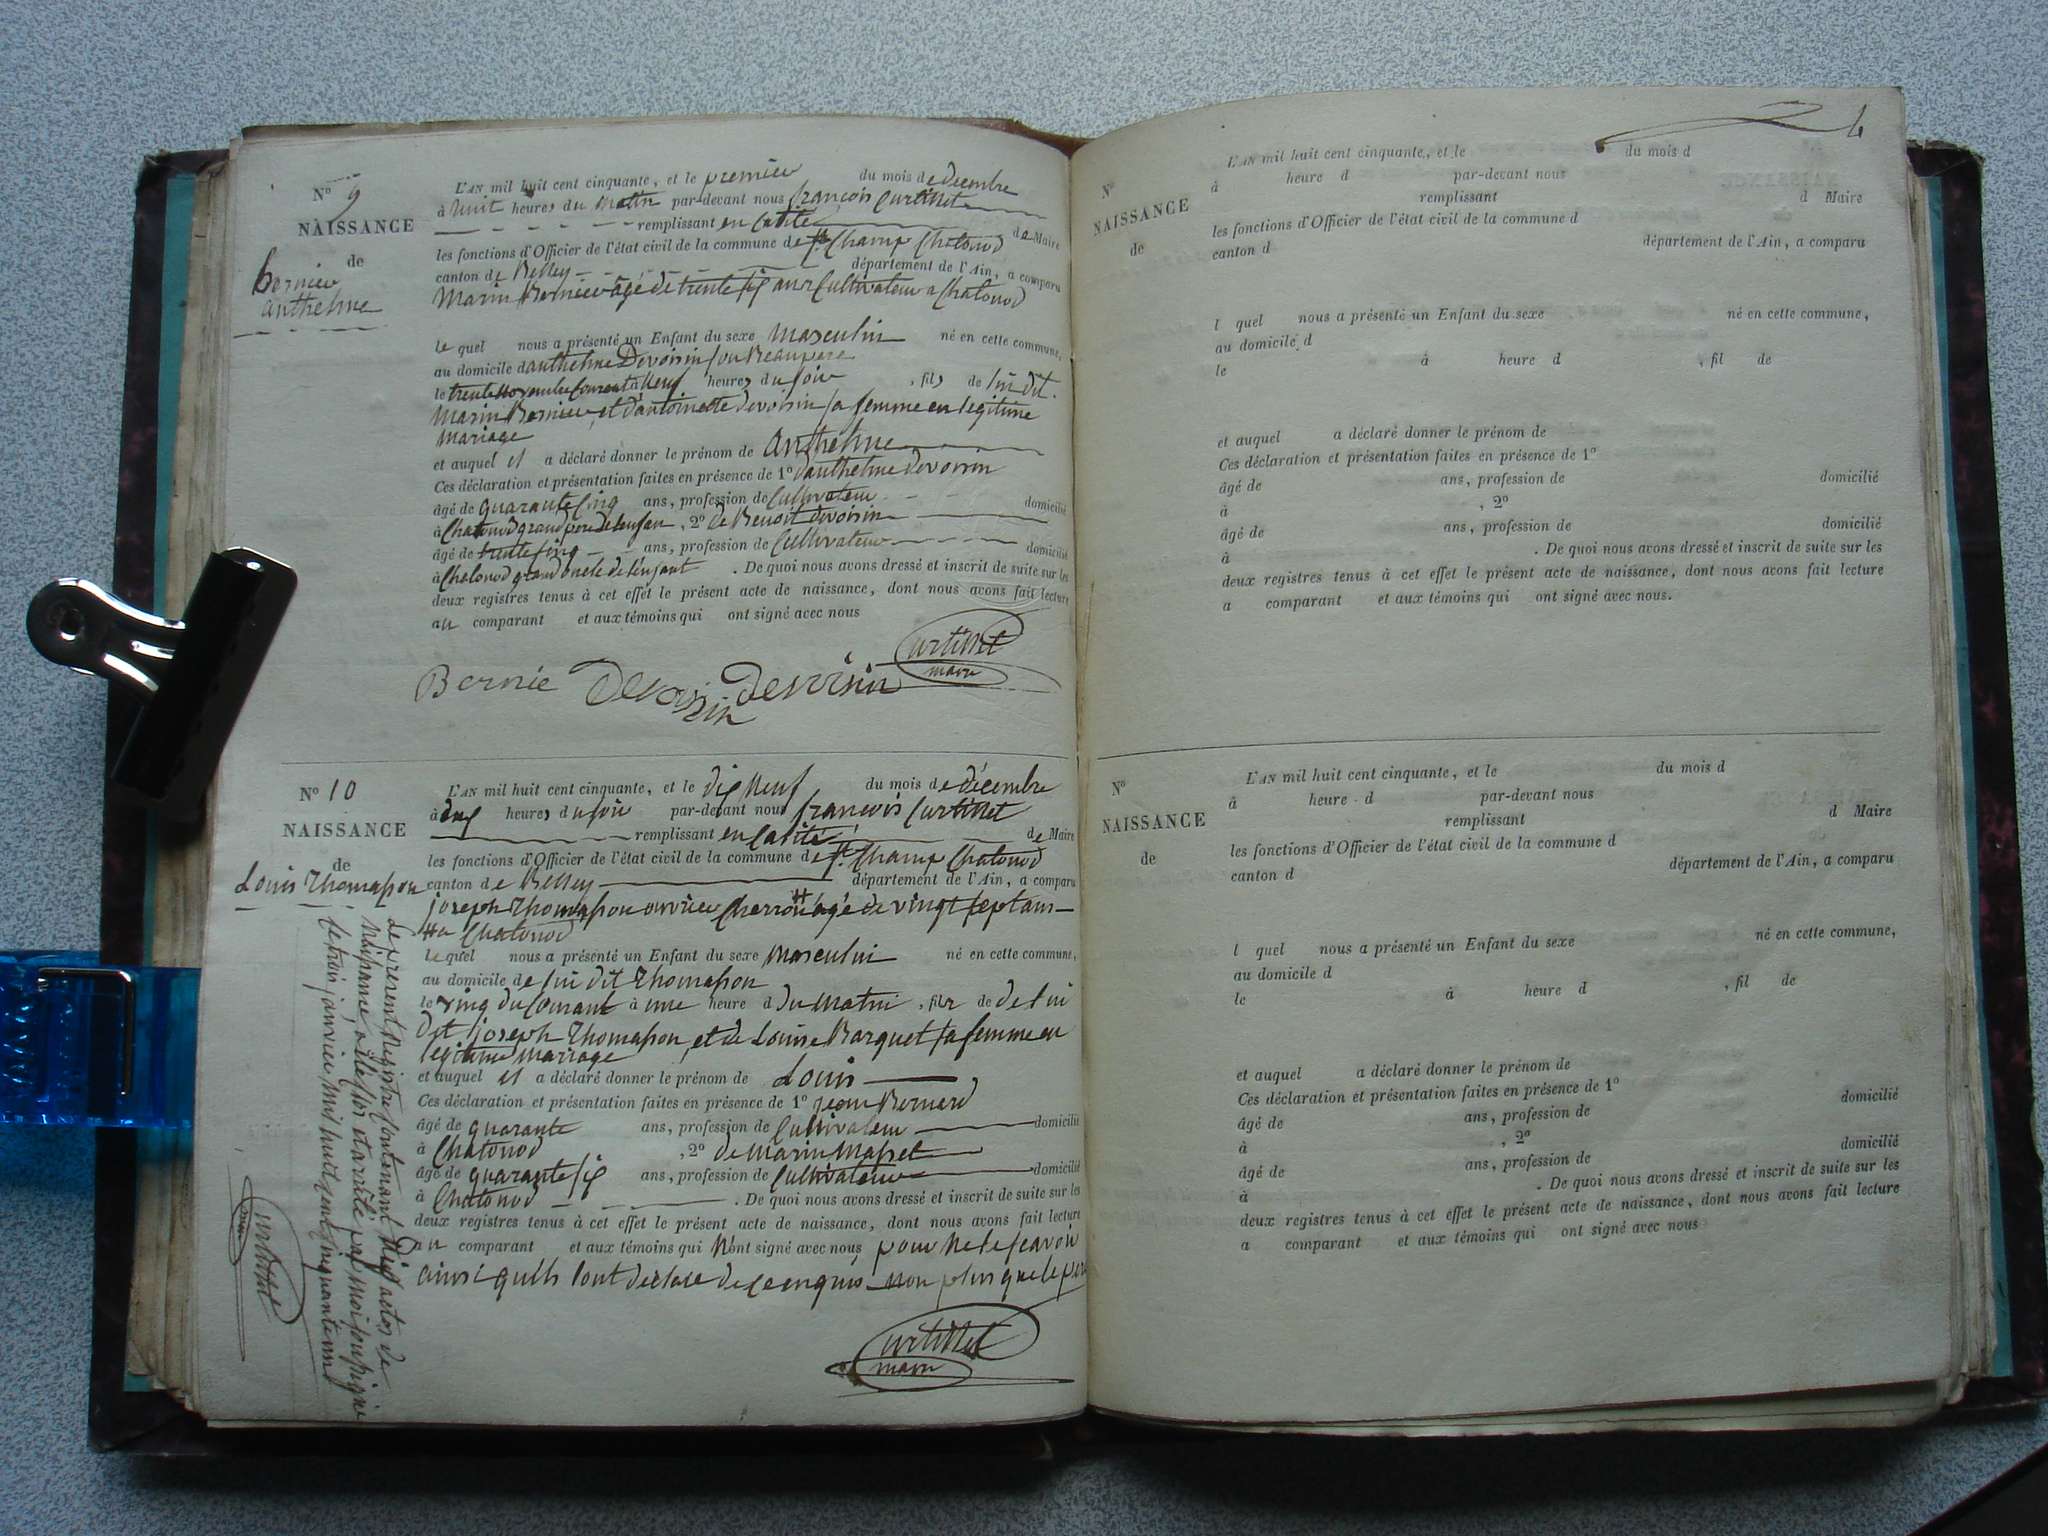 N° 9
NAISSANCE
de
Bernier
anthelme
L'AN mil huit cent cinquante, et le premier du mois de décembre
à huit heures du matin par-devant nous françois Curtillet
remplissant en calité de Maire
les fonctions d'Officier de l'état civil de la commune de St. Champ Chatonod
canton de Belley département de l'Ain, a comparu
Marin Bernier âgé de trente six ans Cultivateur a Chatonod
le quel nous a présenté un Enfant du sexe masculin né en cette commune,
au domicile d'anthelme Devoisin son Beaupere
le trente novembre Courant à Neuf heures du soir, fils de lui dit
Marin Bernier, et d'antoinette devoisin sa femme en legitime
mariage
et auquel il a déclaré donner le prénom de anthelme
Ces déclaration et présentation faites en présence de 1° d'anthelme devoisin
âgé de quarante cinq ans, profession de Cultivateur domicilié
à Chatonod grand pere de lenfan, 2° de Benoit devoisin
âgé de trente cinq ans, profession de Cultivateur domicilié
à Chatonod grand oncle de l'enfant. De quoi nous avons dressé et inscrit de suite sur les
deux registres tenus à cet effet le présent acte de naissance, dont nous avons fait lecture
au comparant et aux témoins qui ont signé avec nous
Curtillet
maire
Bernié Devoisin devoisin
N° 10
NAISSANCE
de
Louis Thomasson
L'AN mil huit cent cinquante, et le dix Neuf du mois de décembre
à deux heures du soir par-devant nous françois Curtillet
remplissant en calité de Maire
les fonctions d'Officier de l'état civil de la commune de St. Champ Chatonod
canton de Belley département de l'Ain, a comparu
joseph Thomasson ouvrier Charron # âgé de vingt sept ans
# a Chatonod
le quel nous a présenté un Enfant du sexe masculin né en cette commune,
au domicile de lui dit Thomasson
le cinq du Courant à une heure d du matin, fils de de lui
dit joseph Thomasson, et de Louise Barquet sa femme en
legitime mariage
et auquel il a déclaré donner le prénom de Louis
Ces déclaration et présentation faites en présence de 1° jean Bernard
âgé de quarante ans, profession de Cultivateur domicilié
à Chatonod, 2° de Marin Masset
âgé de quarante six ans, profession de Cultivateur domicilié
à Chatonod. De quoi nous avons dressé et inscrit de suite sur les
deux registres tenus à cet effet le présent acte de naissance, dont nous avons fait lecture
au comparant et aux témoins qui N'ont signé avec nous pour ne le scavoir
ainsi quils l'ont déclaré de ce enquis non plus que le pere
Curtillet
maire
Le present Registre Contenant dix actes de
Naissance, a été clos et arrêté par moi soussigné
le trois janvier mil huit cent cinquante un
Curtillet
maire
N°
NAISSANCE
de
L'AN mil huit cent cinquante, et le du mois d
à heure d par-devant nous
remplissant d Maire
les fonctions d'Officier de l'état civil de la commune d
canton d département de l'Ain, a comparu
l quel nous a présenté un Enfant du sexe né en cette commune,
au domicile d
le à heure d , fil de
et auquel a déclaré donner le prénom de
Ces déclaration et présentation faites en présence de 1°
âgé de ans, profession de domicilié
à , 2°
âgé de ans, profession de domicilié
à . De quoi nous avons dressé et inscrit de suite sur les
deux registres tenus à cet effet le présent acte de naissance, dont nous avons fait lecture
a comparant et aux témoins qui ont signé avec nous.
N°
NAISSANCE
de
L'AN mil huit cent cinquante, et le du mois d
à heure d par-devant nous
remplissant d Maire
les fonctions d'Officier de l'état civil de la commune d
canton d département de l'Ain, a comparu
l quel nous a présenté un Enfant du sexe né en cette commune,
au domicile d
le à heure d , fil de
et auquel a déclaré donner le prénom de
Ces déclaration et présentation faites en présence de 1°
âgé de ans, profession de domicilié
à , 2°
âgé de ans, profession de domicilié
à . De quoi nous avons dressé et inscrit de suite sur les
deux registres tenus à cet effet le présent acte de naissance, dont nous avons fait lecture
a comparant et aux témoins qui ont signé avec nous